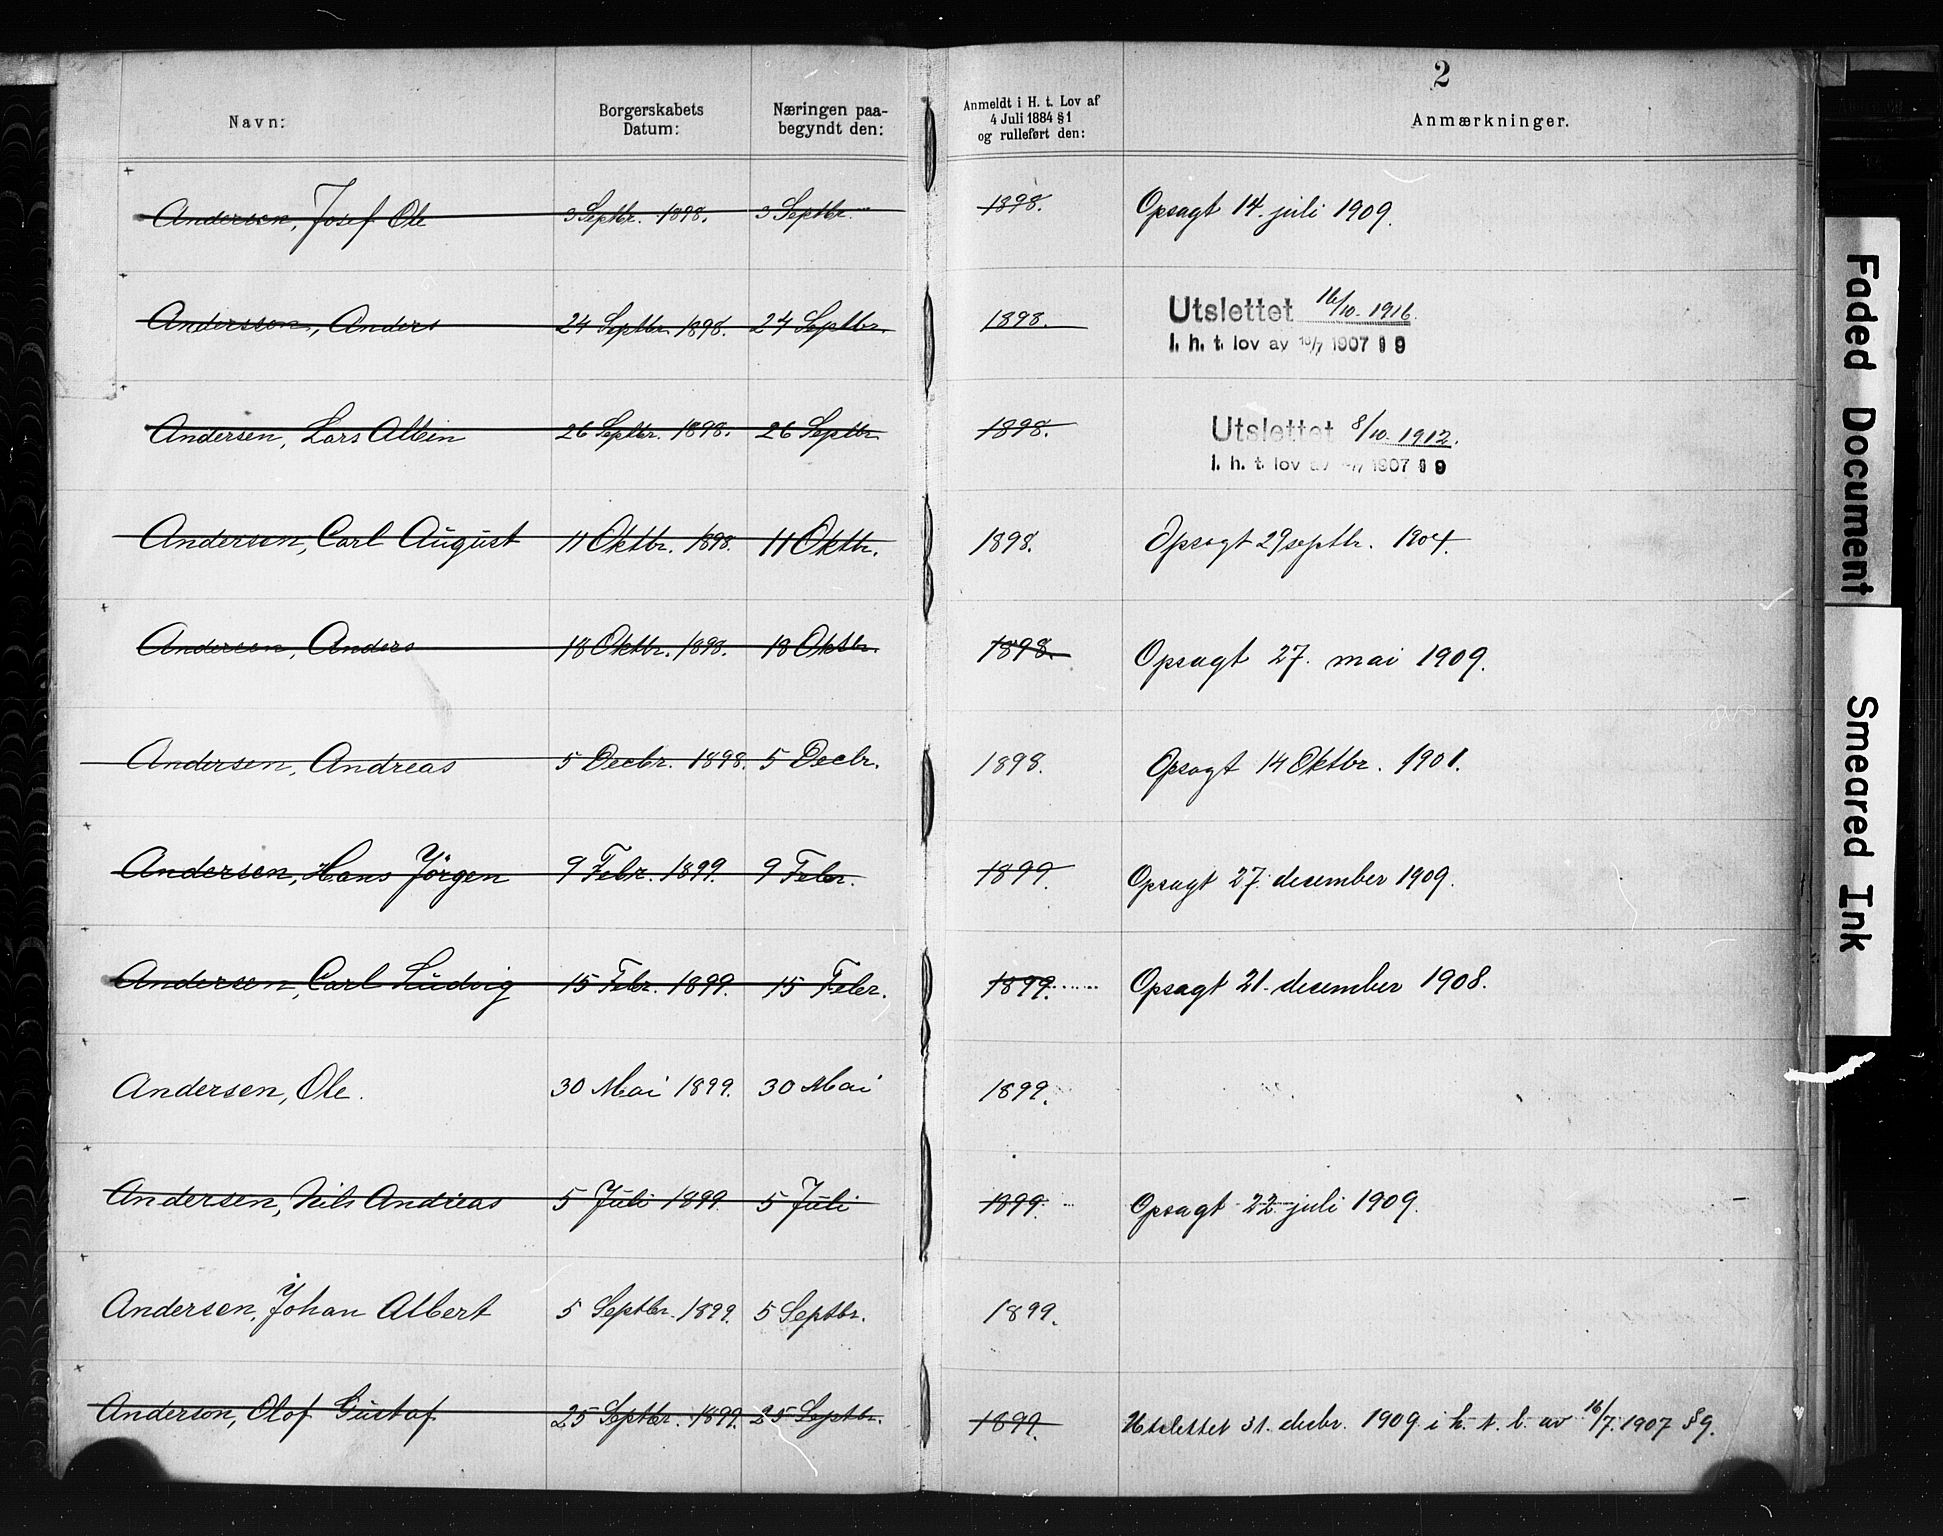 2
Navn: Borgerskabets Datum: Næringen paa-begyndt den: Anmeldt i H. t. Lov af 4 Juli 1884 § 1 og rulleført den: Anmærkninger.
Andersen, Josef Ole 3 Septbr. 1898. 3 Septbr. 1898. Opsagt 14. juli 1909.
Anderssen, Anders 24 Septbr. 1898. 24 Septbr. 1898. Utslettet 16/10. 1916.
I. h. t. lov av 16/7 1907 § 9
Andersen, Lars Albin 26 Septbr. 1898. 26 Septbr. 1898. Utslettet 8/10. 1912.
I. h. t. lov av 1907 § 9
Andersen, Carl August 11 Oktbr. 1898. 11 Oktbr. 1898. Opsagt 29 septbr. 1904.
Andersen, Anders 18 Oktbr. 1898. 18 Oktbr. 1898. Opsagt 27. mai 1909.
Andersen, Andreas 5 Decbr. 1898. 5 Decbr. 1898. Opsagt 14 Oktbr. 1901.
Andersen, Hans Jörgen 9 Febr. 1899. 9 Febr. 1899. Opsagt 27. december 1909.
Andersen, Carl Ludvig 15 Febr. 1899. 15 Febr. 1899. Opsagt 21. december 1908.
Andersen, Ole. 30 Mai 1899. 30 Mai 1899.
Andersen, Nils Andreas 5 Juli 1899. 5 Juli 1899. Opsagt 22 juli 1909.
Andersen, Johan Albert 5 Septbr. 1899. 5 Septbr. 1899.
Anderson, Olof Gustaf 25 Septbr. 1899. 25 Septbr. 1899. Utslettet 31. decbr. 1909 i h. t. l. av 16/7. 1907 § 9.
Faded Document
Smeared Ink